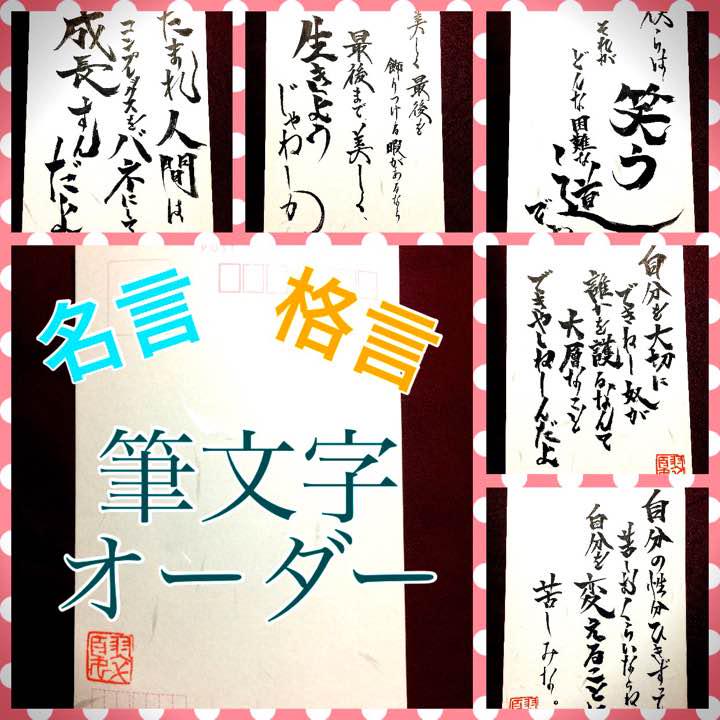 だまれ人間は
コンプレックスをバネにして
成長すんだよ
美しく最後を
飾りつける暇があるなら
最後まで美しく
生きようじゃねーか
僕らは
それが
どんな困難な道
でも
笑う
POST
名言 格言
筆文字
オーダー
自分も大切に
できねー奴が
誰かを護るなんて
大層なこと
できやしねーんだよ
自分の性分ひきずって
苦しむくらいならね
自分を変えること
苦しみな。